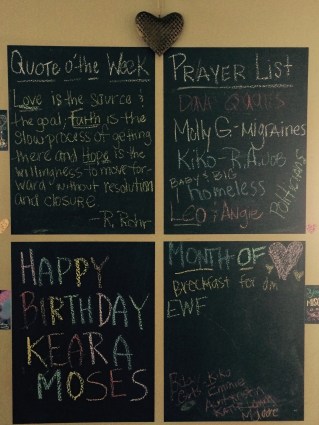 QUOTE O'THE WEEK
Love is the source &
the goal, Faith is the
slow process of getting
there and Hope is the
willingness to move for-
ward without resolution
and closure
-R. Rohr
PRAYER LIST
Dana Quadres
Molly G-Migraines
Kiko-R.A. Job
BABY & BIG
homeless
LEO & Angie
Politicians
HAPPY
BIRTHDAY
KEARA
MOSES
MONTH OF
Breakfast for dm
EWF
Kiki
Girls Emma